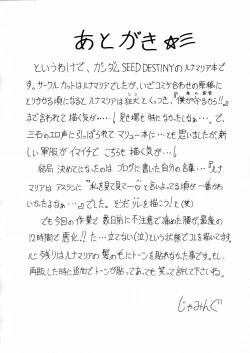 あとがき☆彡
というわけで、ガンダムSEED DESTINYのルナマリア本です。サークルカットはルナマリアでしたが、いざコミケ合わせの原稿に
とりかかる頃になるとルナマリアは狂犬とくっつき、"僕がやるう!!"
まで言われて描く気が…！見せ場も特になかったしなぁ…で、
三石のエロ声に引っぱられてマリュー本に…とも思いましたが、新
しい軍服がイマイチで こちらも描く気が…！
結局 決めてになったのは ブログに書いた自分の言葉…『ルナ
マリアは アスランに "私を見て見て〜♡"と言いよってる頃が一番かわ
いかったよなぁ…』でした。
でも今回の作業で 数日前に不注意で痛めた腰が最後の
12時間で悪化!! た…立てない(泣)という状態でコレを描いてます。
心残りはルナマリアの髪の毛にトーンを貼れなかった事です。もし、
再販した時に追加でトーンが貼ってあっても笑って許して下さいね。
じゃみんぐ